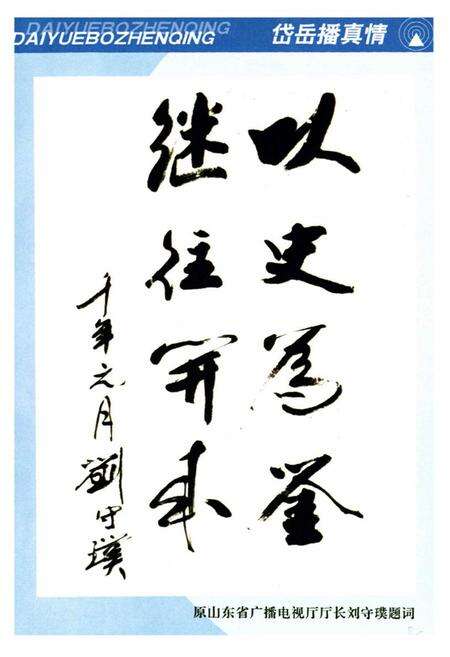 DAIYUEBOZHENQING
DAIYUEBOZHENQING
岱岳播真情
以史为鉴
继往开来
千年元月 劉守璞
原山东省广播电视厅厅长刘守璞题词